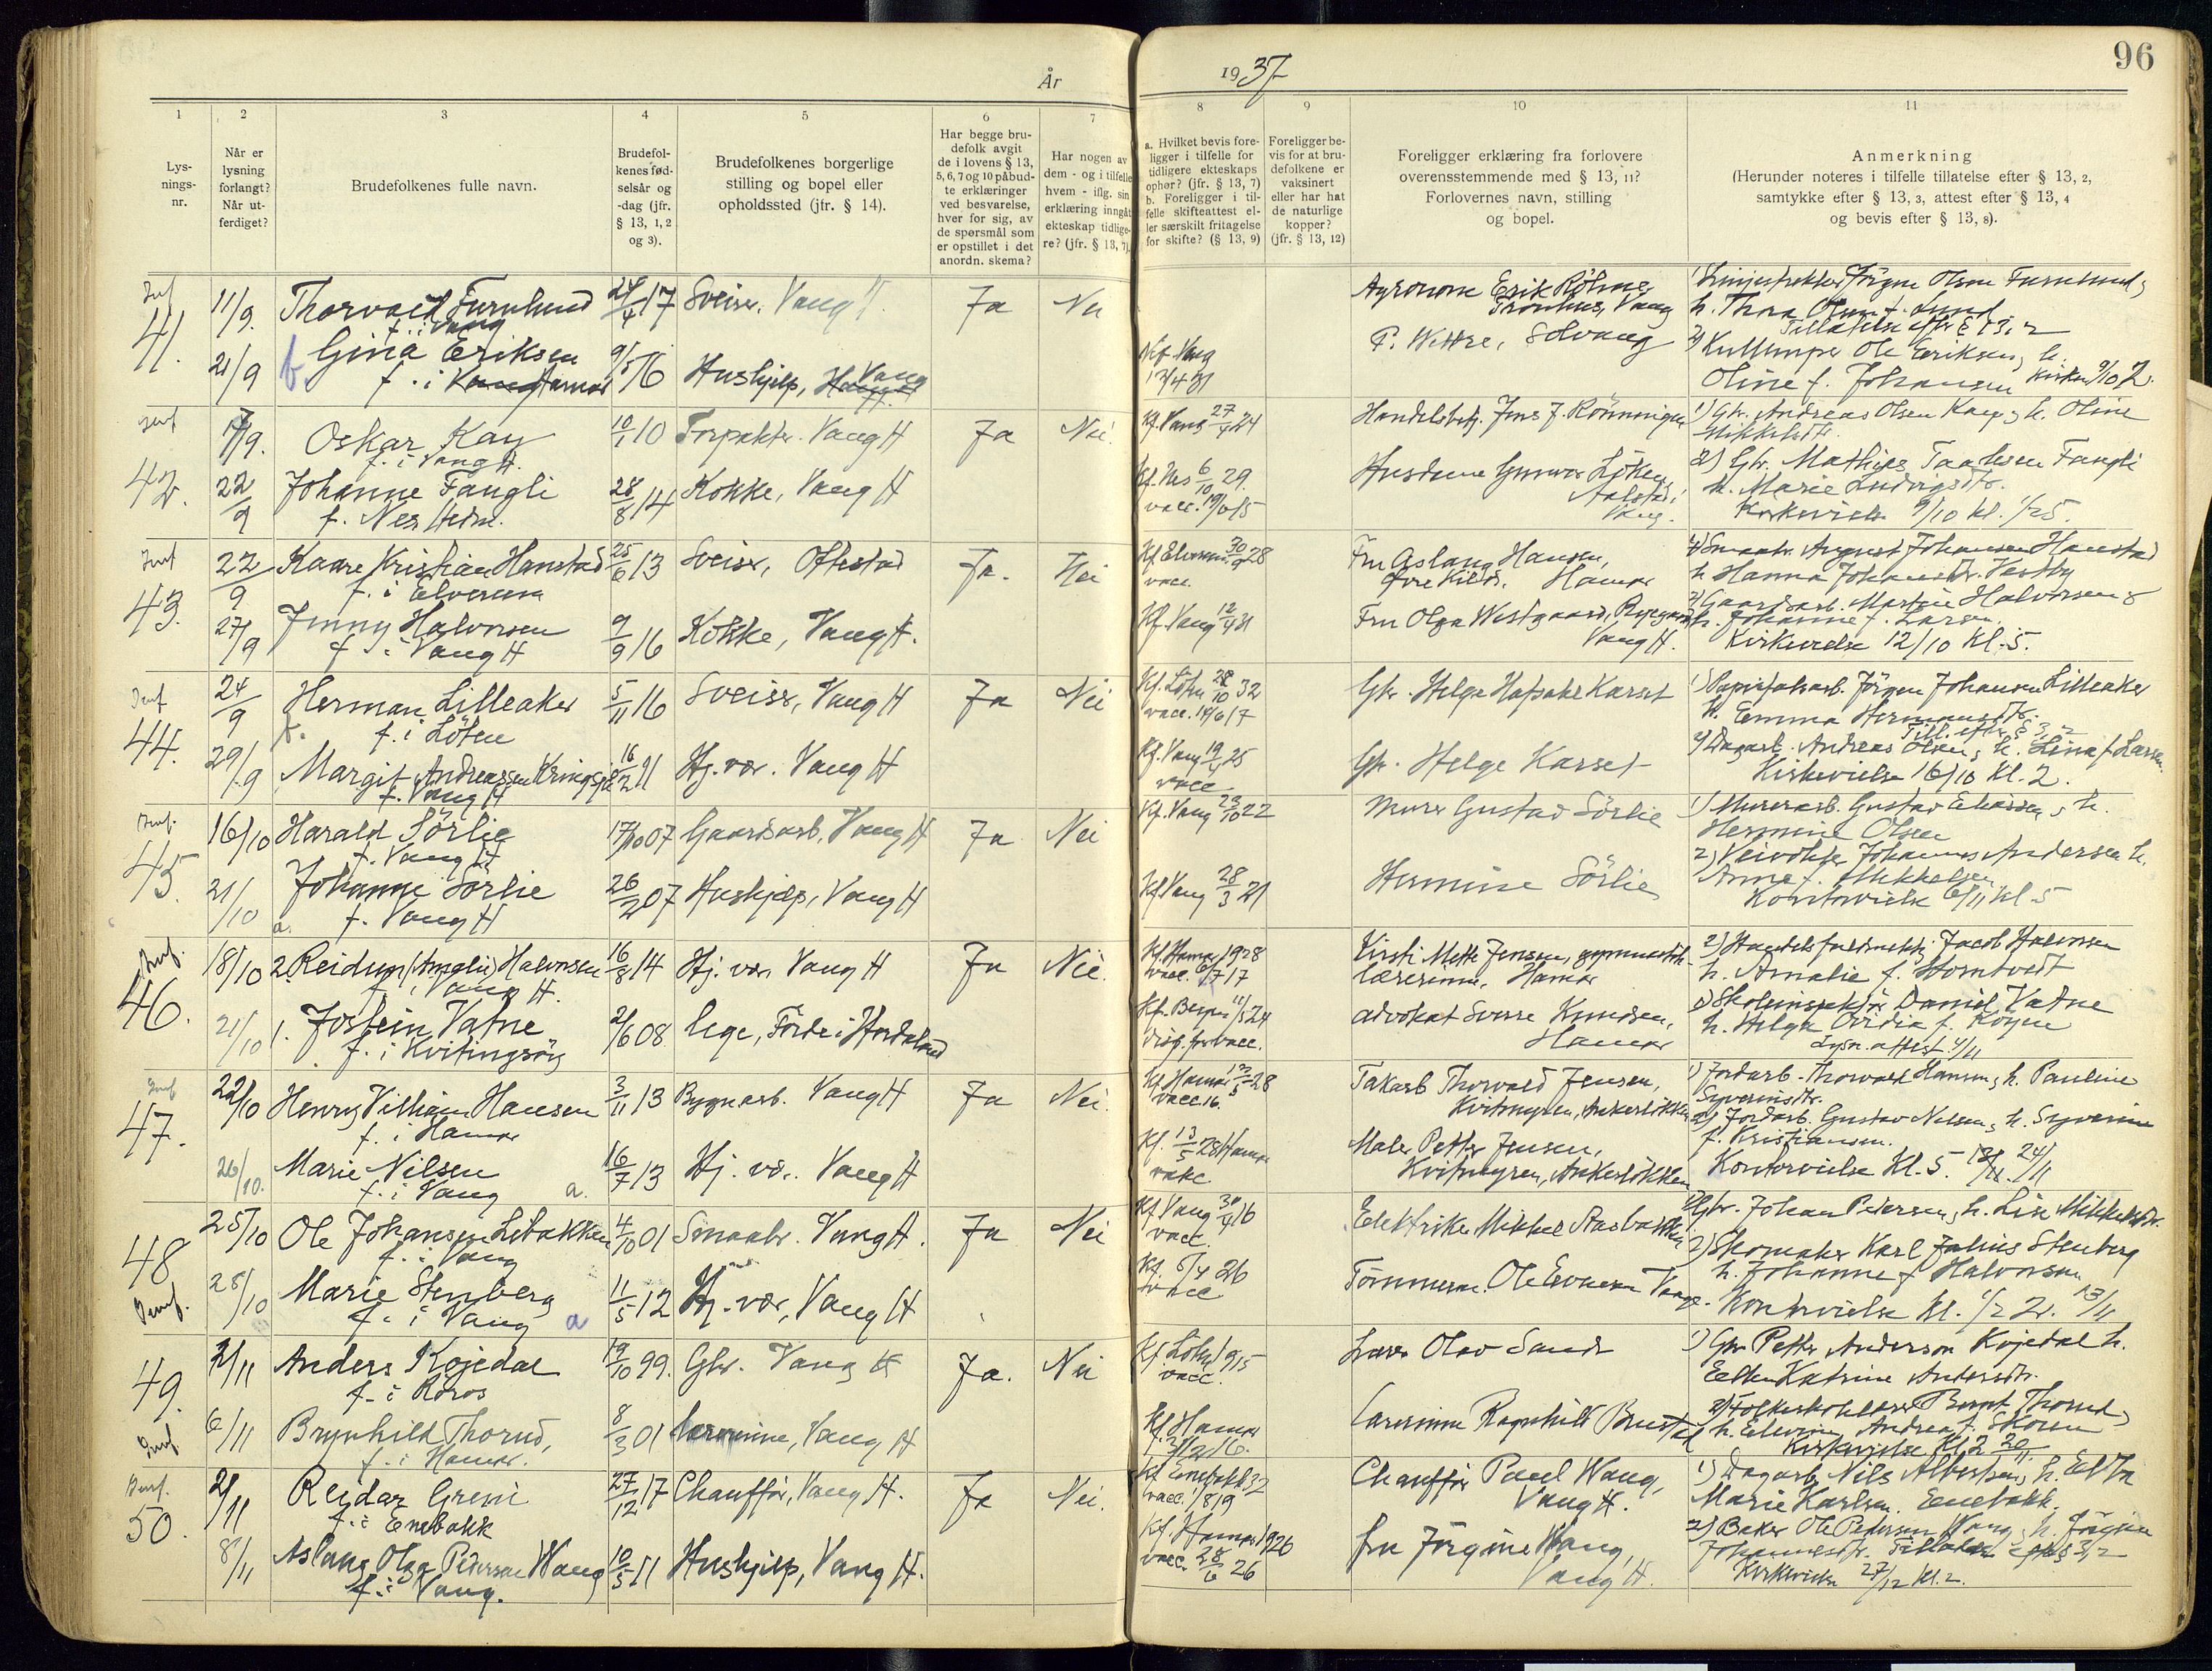 96
År 1937
1 2 3 4 5 6 7 8 9 10 11
Lys-
nings-
nr.
Når er
lysning
forlangt?
Når ut-
ferdiget?
Brudefolkenes fulle navn.
Brudefol-
kenes fød-
selsår og
-dag (jfr.
§ 13, 1, 2
og 3).
Brudefolkenes borgerlige
stilling og bopel eller
opholdssted (jfr. § 14).
Har begge bru-
defolk avgit
de i lovens § 13,
5, 6, 7 og 10 påbud-
te erklæringer
ved besvarelse,
hver for sig, av
de spørsmål som
er opstillet i det
anordn. skema?
Har nogen av
dem - og i tilfelle
hvem - iflg. sin
erklæring inngåt
ekteskap tidlige-
re? (jfr. § 13, 7).
a. Hvilket bevis fore-
ligger i tilfelle for
tidligere ekteskaps
ophør? (jfr. § 13, 7)
b. Foreligger i til-
felle skifteattest el-
ler særskilt fritagelse
for skifte? (§ 13, 9)
Foreligger be-
vis for at bru-
defolkene er
vaksinert
eller har hat
de naturlige
kopper?
(jfr. § 13, 12)
Foreligger erklæring fra forlovere
overensstemmende med § 13, 11?
Forlovernes navn, stilling
og bopel.
Anmerkning
(Herunder noteres i tilfelle tillatelse efter § 13, 2,
samtykke efter § 13, 3, attest efter § 13, 4
og bevis efter § 13, 8).
41. 11/9. Thorvald Furulund 24/4 17 Sveiser. Vang H. Ja Nei
f. i Vang
Agronom Erik Röhne
Tronhus, Vang
h. Thora Olsen f. Lund
Tillatelse efter § 13, 2
21/9 Gina Eriksen 9/5 16 Hushjelp, Vang
f. i Hamar
Kf. Vang
12/4 31
P. Wettre, Solvang
2) Ole Eriksen, h.
Oline f. Johansen Kirken 9/10 2.
42. 17/9. Oskar Kay 10/1 10 Forpakter. Vang H Ja Nei.
f. i Vang H.
Kf. Vang 27/4 24
Handelsbetj. Jens J. Rönningen
1) Gbr. Andreas Olsen Kay, h. Oline
Mikkelsdtr.
22/9 Johanne Fangli 28/8 14 Kokke, Vang H
f. Nes Hedm.
Kf. Nes 6/10 29.
vacc. 19/6 15
Husdame Gunvor Löken,
Vang.
2) Gbr. Mathias Fangli
h. Marie Ludvigsdtr.
Kirkevielse 9/10 kl. 1/2 5.
43. 22/9 Kaare Kristian Hanstad 25/6 13 Sveiser, Oftestad Ja. Nei
f. i Elverum
Kf. Elverum 30/9 28
vacc.
Fru Aslaug Hansen,
Hamar
1) Smaabr. August Johansen Hanstad
h. Hanna Johansdtr. Vestby
27/9 Jenny Halvorsen 9/9 16 Kokke, Vang H.
f. i Vang H
Kf. Vang 12/4 31
Fru Olga Westgaard,
Vang H.
2) Gaardsarb. Martin Halvorsen &
h. Johanne f. Larsen.
Kirkevielse 12/10 Kl. 5.
44. 24/9 Herman Lilleaker 5/11 16 Sveiser, Vang H Ja Nei
f. i Löten
Kf. Löten 28/10 32
vacc. 14/6 17
Gbr. Helge Hafsahl Karset
1) Papirfabarb. Jörgen Johansen Lilleaker
h. Emma Hermansdtr.
Till. efter § 3, 2
29/9 Margit Andreassen Kringsjö 16/2 11 Hj. vær. Vang H
f. Vang H
Kf. Vang 19/4 25
vacc
Gbr. Helge Karset
2) Dagarb. Andreas Olsen, h. Lina f. Larsen.
Kirkevielse 16/10 kl. 2.
45. 16/10 Harald Sörlie 17/10 07 Gaardsarb. Vang H Ja Nei
f. Vang H
Kf. Vang 29/10 22
Murer Gustav Sörlie
1) Murerarb. Gustav Eliassen, h.
Hermine Olsen
21/10 Johanne Sörlie 26/2 07 Hushjelp, Vang H
a. f. Vang H
Kf. Vang 28/3 21
Hermine Sörlie
2) Veivokter Johannes Andersen h.
Anne f. Mikkelsen
Kontorvielse 6/11 kl. 5
46. 18/10 2. Reidun (Amalie) Halvorsen 16/8 14 Hj. vær. Vang H Ja Nei.
f. i Vang H.
Kf. Hamar 1928
vacc. 6/7 17
Kirsti Mette Jensen, gymnastik-
lærerinne, Hamar
2) Handelsfuldmektig Jacob Halvorsen
h. Amalie f. Storntvedt
21/10 1. Jostein Vatne 2/6 08 lege, Förde i Hordaland
f. i Kvitingsöy
Kf. Bergen 11/5 24
disp. for vacc.
advokat Sverre Knudsen,
Hamar
1) Skoleinspektör Daniel Vatne
h. Helga Ovidia f. Röyne
Lysn. attest 4/11
47. 22/10 Henry Vilhjam Hansen 3/11 13 Bygnarb. Vang H Ja Nei.
f. i Hamar
Kf. Hamar 13/5 28
vacc. 16.
Takarb Thorvald Jensen,
Kvitmyren, Ankerlökken
1) Jordarb. Thorvald Hansen, h. Pauline
Syverinsdtr.
26/10. Marie Nilsen 16/7 13 Hj. vær. Vang H
f. i Vang a.
Kf. 13/5 28 Hamar
vakc
Maler Petter Jensen,
Kvitmyren, Ankerlökken
2) Jordarb. Gustav Nilsen, h. Syverine
f. Kristiansen.
Kontorvielse Kl. 5. 24/11
48 25/10 Ole Johansen Libakken 4/10 01 Smaabr. Vang H. Ja Nei
f. i Vang
Kf. Vang 30/4 16
vacc.
Elektriker Mikkel Aasbakken
1) Gbr. Johan Petersen, h. Lise Mikkelsdtr.
28/10 Marie Stenberg 11/5 12 Hj. vær, Vang H
f. i Vang a
Kf. 5/4 26
vacc
Tömmerm. Ole Evensen Vang.
2) Skomaker Karl Julius Stenberg
h. Johanne f. Halvorsen
Kontorvielse kl. 1/2 2. 13/11
49. 2/11 Anders Kojedal 19/10 99. Gbr. Vang H Ja. Nei
f. i Röros
Kf. Löten 1915
vacc.
Lærer Olav Sande
1) Gbr Petter Anderson Kojedal h.
Ellen Katrine Andersdtr.
6/11 Brynhild Thorud, 8/3 01 lærerinne, Vang H
f. i Hamar.
Kf. Hamar
Lærerinne Ragnhild Brustad
2) Folkeskolelærer Bernt Thorud,
h. Elevine Andrea f. Skoren
Kirkevielse Kl 2 20/11.
50. 2/11 Reidar Greni 27/12 17 Chauffør, Vang H. Ja Nei.
f. i Enebakk
Kf. Enebakk 32
vacc. 1819
Chauffør Paul Wang,
Vang H.
1) Dagarb. Nils Albertsen, h. Elba
Marie Karlsen. Enebakk.
8/11 Aslaug Olga Pedersen Wang 10/5 11 Hushjelp, Vang H.
f. i Vang.
Kf. Hamar 1926
vacc. 28/6 26
fru Jörgine Wang,
Vang H.
2) Baker Ole Pedersen Wang, h. Jörgine
Johannesdtr. Tillatelse § 3, 2
Kirkevielse 27/12 kl. 2.